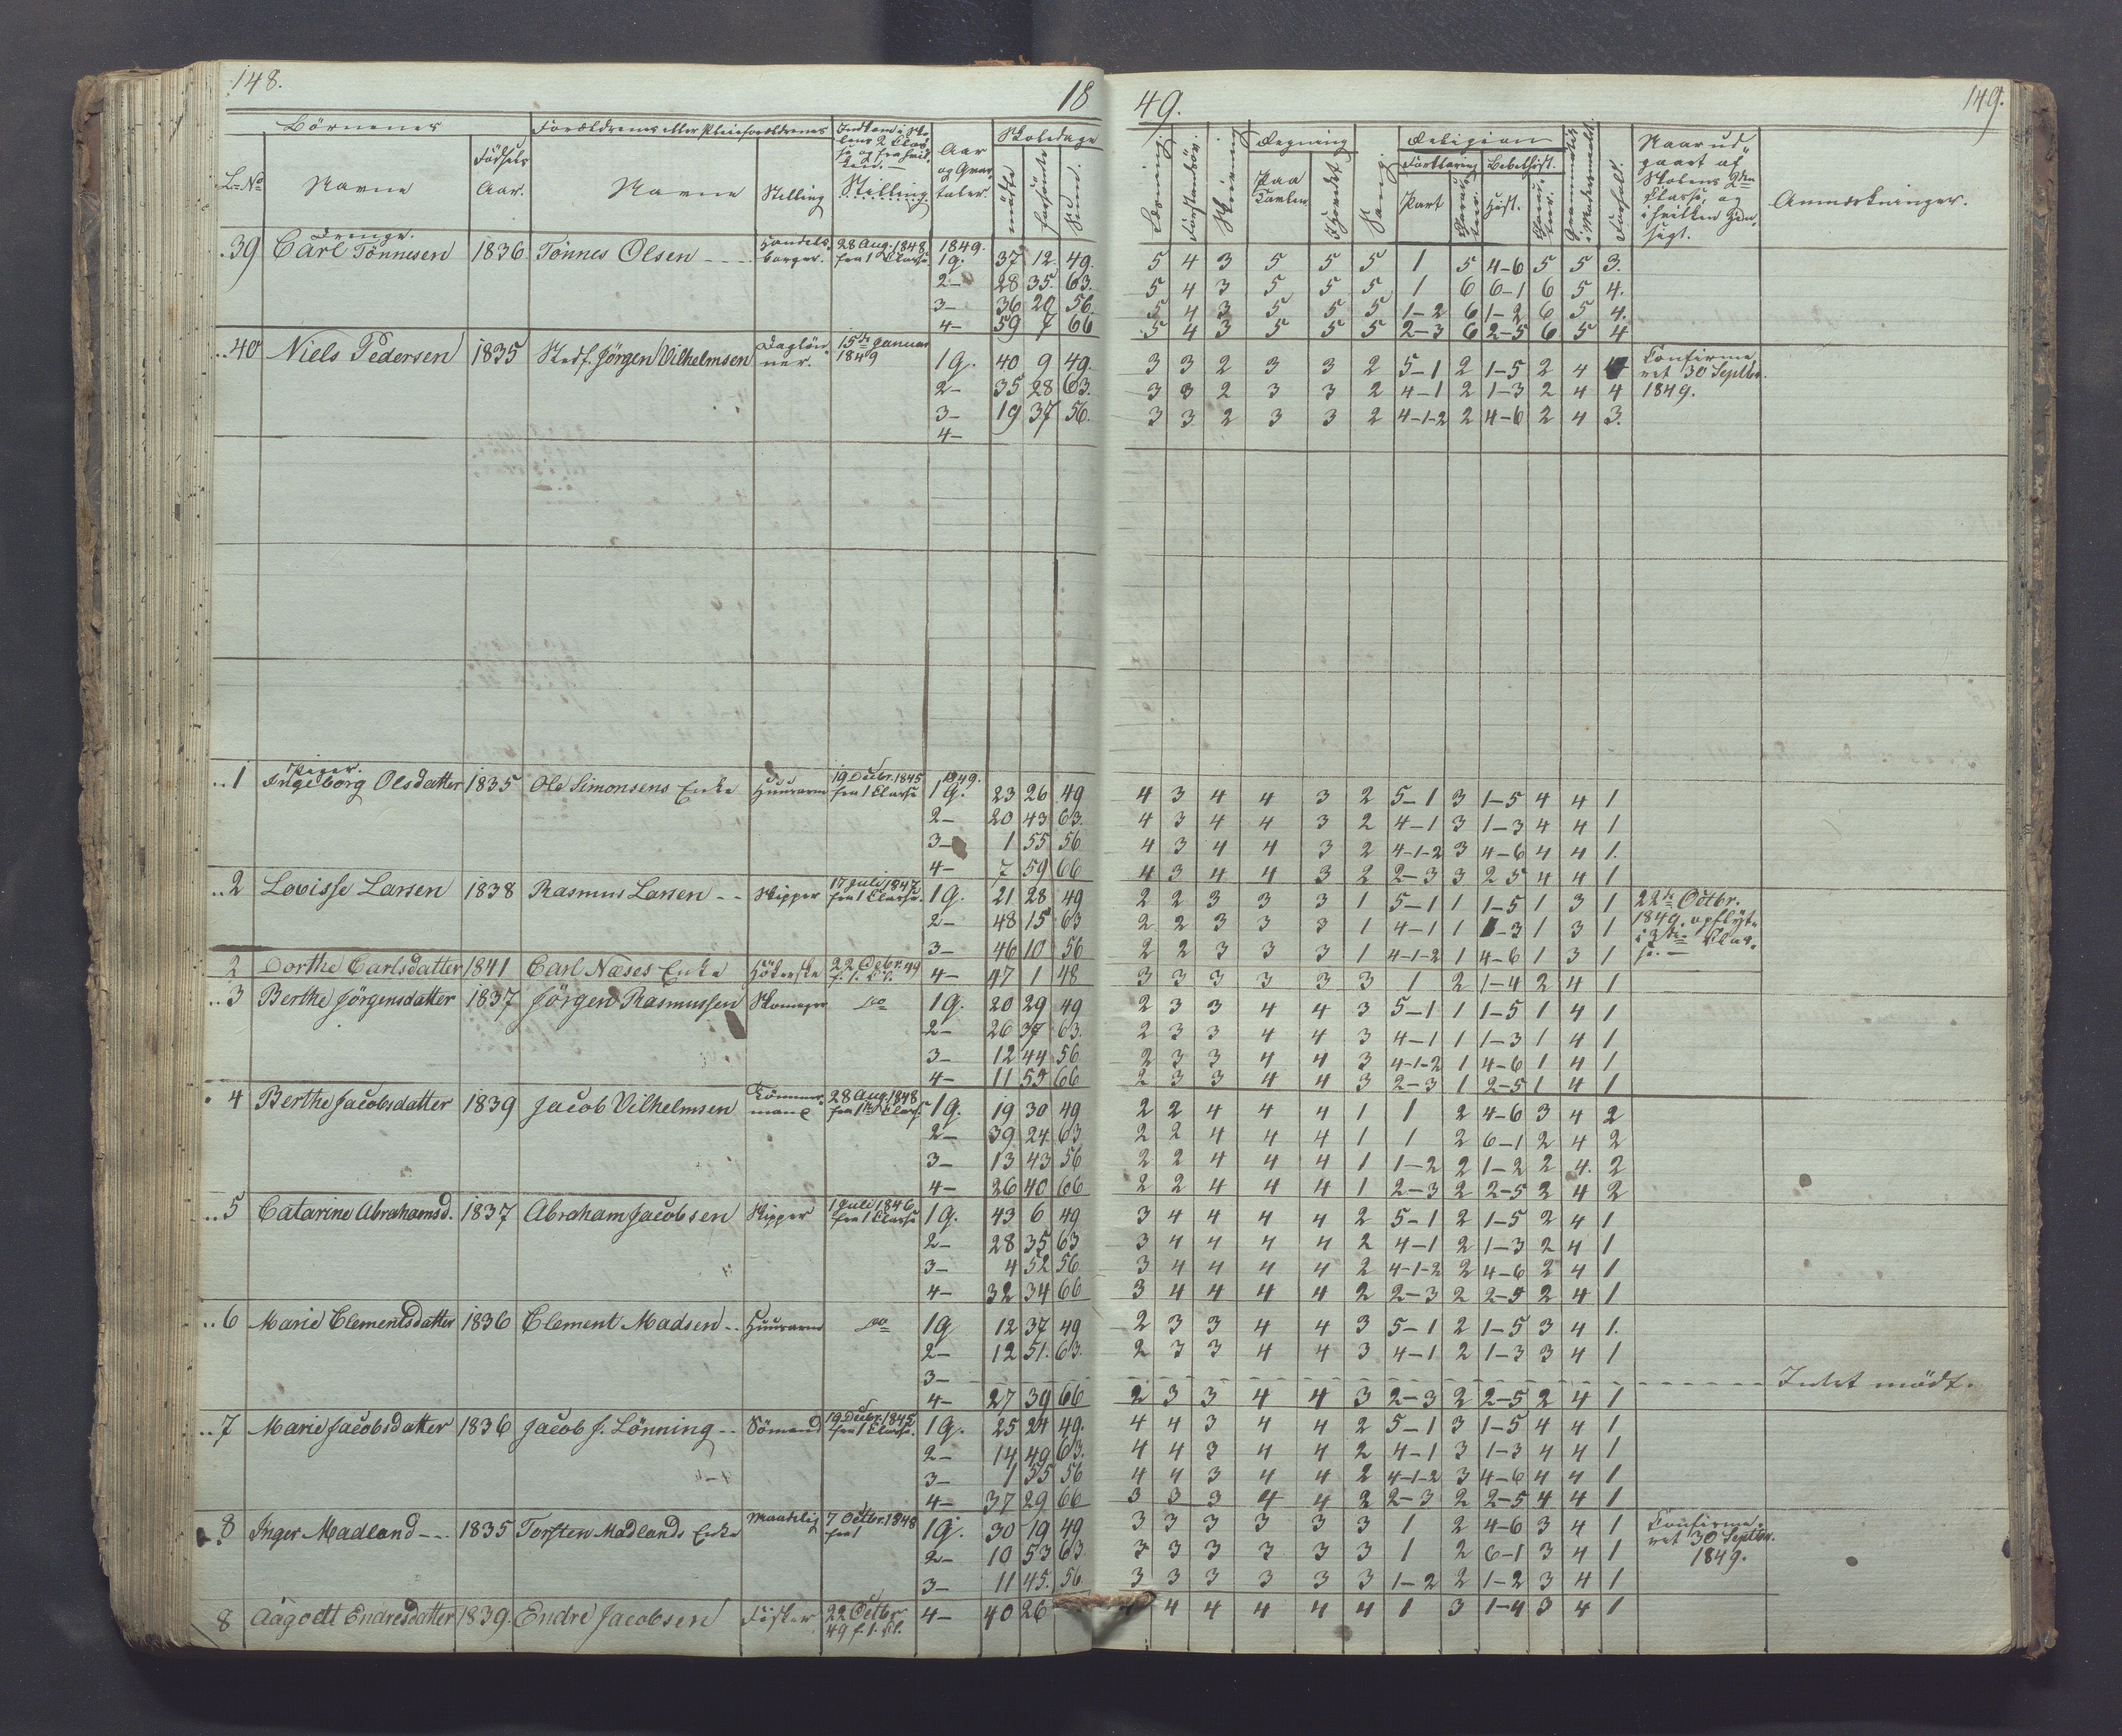 148.
18
49.
149.
Börnenes
Forældrenes eller Pleieforældrenes
Skoledage
L. No
Navne
Födsels Aar.
Navne
Stilling
Stilling
Aar og Qvartaler.
mödte
forsömte
Sum.
Læsning.
Forstandsöv.
Skrivning
Regning
Paa Tavlen
I Hovedet
Sang.
Religion
Forklaring
Bibelhist.
Part
Hist.
Forhold.
Naar udgaaet af Skolens 2den Classe, og i hvilken Hensigt.
Anmærkninger.
Drenge.
39 Carl Tönnesen 1836 Tönnes Olsen Handelsborger. 28 Aug. 1848. fra 1 Classe. 1849.
1 q. 37 12 49. 5 4 3 5 5 5 1 5 4-6 5 5 3.
2 – 28 35. 63. 5 4 3 5 5 5 1 6 6-1 6 5 4.
3 – 36 20 56. 5 4 3 5 5 5 1-2 6 1-2 6 5 4.
4 – 59 7 66 5 4 3 5 5 5 2-3 6 2-5 6 5 4
40 Niels Pedersen 1835 Stedf. Jörgen Vilhelmsen Daglönner. 15de Januar 1849
1 q. 40 9 49. 3 3 2 3 3 2 5-1 2 1-5 2 4 Confirmeret 30 Septbr. 1849.
2 – 35 28 63. 3 3 2 3 3 2 4-1 2 1-3 2 4 4
3 – 19 37 56. 3 3 2 3 3 2 4-1-2 2 4-6 2 4 3.
4 –
Piger.
1 Ingeborg Olsdatter 1835 Ole Simonsens Enke Huusarm 19 Decbr. 1845 fra 1 Classe 1849.
1 q. 23 26 49 4 3 4 4 3 2 5-1 3 1-5 4 4 1
2 – 20 43 63. 4 3 4 4 3 2 4-1 3 1-3 4 4 1
3 – 1 55 56 4 3 4 4 3 2 4-1-2 3 4-6 4 4 1.
4 – 7 59 66 4 3 4 4 3 2 2-3 3 2 5 4 4 1
2 Lovisse Larsen 1838 Rasmus Larsen Skipper 17 Juli 1847 fra 1 Classe.
1 q. 21 28 49 2 2 3 3 3 1 5-1 1 1-5 1 3 1 22de Octbr. 1849 opflyt. i 3die Classe.
2 – 48 15 63 2 2 3 3 3 1 4-1 1 1-3 1 3 1
3 – 46 10 56 2 2 3 3 3 1 4-1-2 1 4-6 1 3 1
2 Dorthe Carlsdatter 1841 Carl Næses Enke Hökerske 22 Octbr. 49 f. 1. Kl. 4 – 47 1 48 3 3 3 3 3 3 1 2 1-4 2 4 1
3 Berthe Jörgensdatter 1837 Jörgen Rasmussen Skomager do
1 q. 20 29 49 2 3 3 4 4 3 5-1 1 1-5 1 4 1
2 – 26 37 63. 2 3 3 4 4 3 4-1 1 1-3 1 4 1
3 – 12 44 56 2 3 3 4 4 3 4-1-2 1 4-6 1 4 1
4 – 11 55 66 2 3 3 4 4 3 2-3 1 2-5 1 4 1
4 Berthe Jacobsdatter 1839 Jacob Vilhelmsen Tömmermand 28 Aug. 1848 fra 1ste Classe
1 q. 19 30 49 2 2 4 4 4 1 1 2 4-6 3 4 2
2 – 39 24 63 2 2 4 4 4 1 1 2 6-1 2 4 2
3 – 13 43 56 2 2 4 4 4 1 1-2 2 1-2 2 4. 2
4 – 26 40 66 2 2 4 4 4 1 2-3 2 2-5 2 4 2
5 Catarine Abrahamsd. 1837 Abraham Jacobsen Skipper 1 Juli 1846 fra 1 Classe
1 q. 43 6 49 3 4 4 4 4 2 5-1 2 1-5 2 4 1
2 – 28 35 63 3 4 4 4 4 2 4-1 2 1-3 2 4 1
3 – 4 52 56. 3 4 4 4 4 2 4-1-2 2 4-6 2 4 1
4 – 32 34 66 3 4 4 4 4 2 2-3 2 2-5 2 4 1
6 Marie Clementsdatter 1836 Clement Madsen Huusarm do
1 q 12 37 49 2 3 3 4 4 3 5-1 2 1-5 3 4 1.
2 – 12 51. 63. 2 3 3 4 4 3 4-1 2 1-3 3 4 1
3 – Intet mödt.
4 – 27 39 66 2 3 3 4 4 3 2-3 2 2-5 2 4 1
7 Marie Jacobsdatter 1836 Jacob J. Lönning Sömand 19 Decbr. 1845 fra 1 Classe.
1 q. 25 24 49. 4 4 3 4 4 2 5-1 3 1-5 4 4 1
2 – 14 49 63. 4 4 3 4 4 2 4-1 3 1-3 4 4 1
3 – 1 55 56 4 4 3 4 4 2 4-1-2 3 4-6 4 4 1
4 – 37 29 66 3 3 3 4 4 2 2-3 2 2-5 4 4 1
8 Inger Madland 1835 Torsten Madlands Enke 7 Octbr. 1848 fra 1
1 q. 30 19 49 3 3 3 3 3 3 1 2 4-6 3 4 1 Confirmeret 30 Septbr. 1849.
2 – 10 53 63 3 3 3 3 3 3 1 2 6-1 3 4 1
3 – 11 45. 56 3 3 3 3 3 3 1-2 2 1-2 3 4 1
8 Aagodt Endresdatter 1839. Endre Jacobsen Fisker 22 Octbr 49 f. 1. Kl. 4 – 40 26 4 4 4 4 4 1 3 1-4 3 4 1